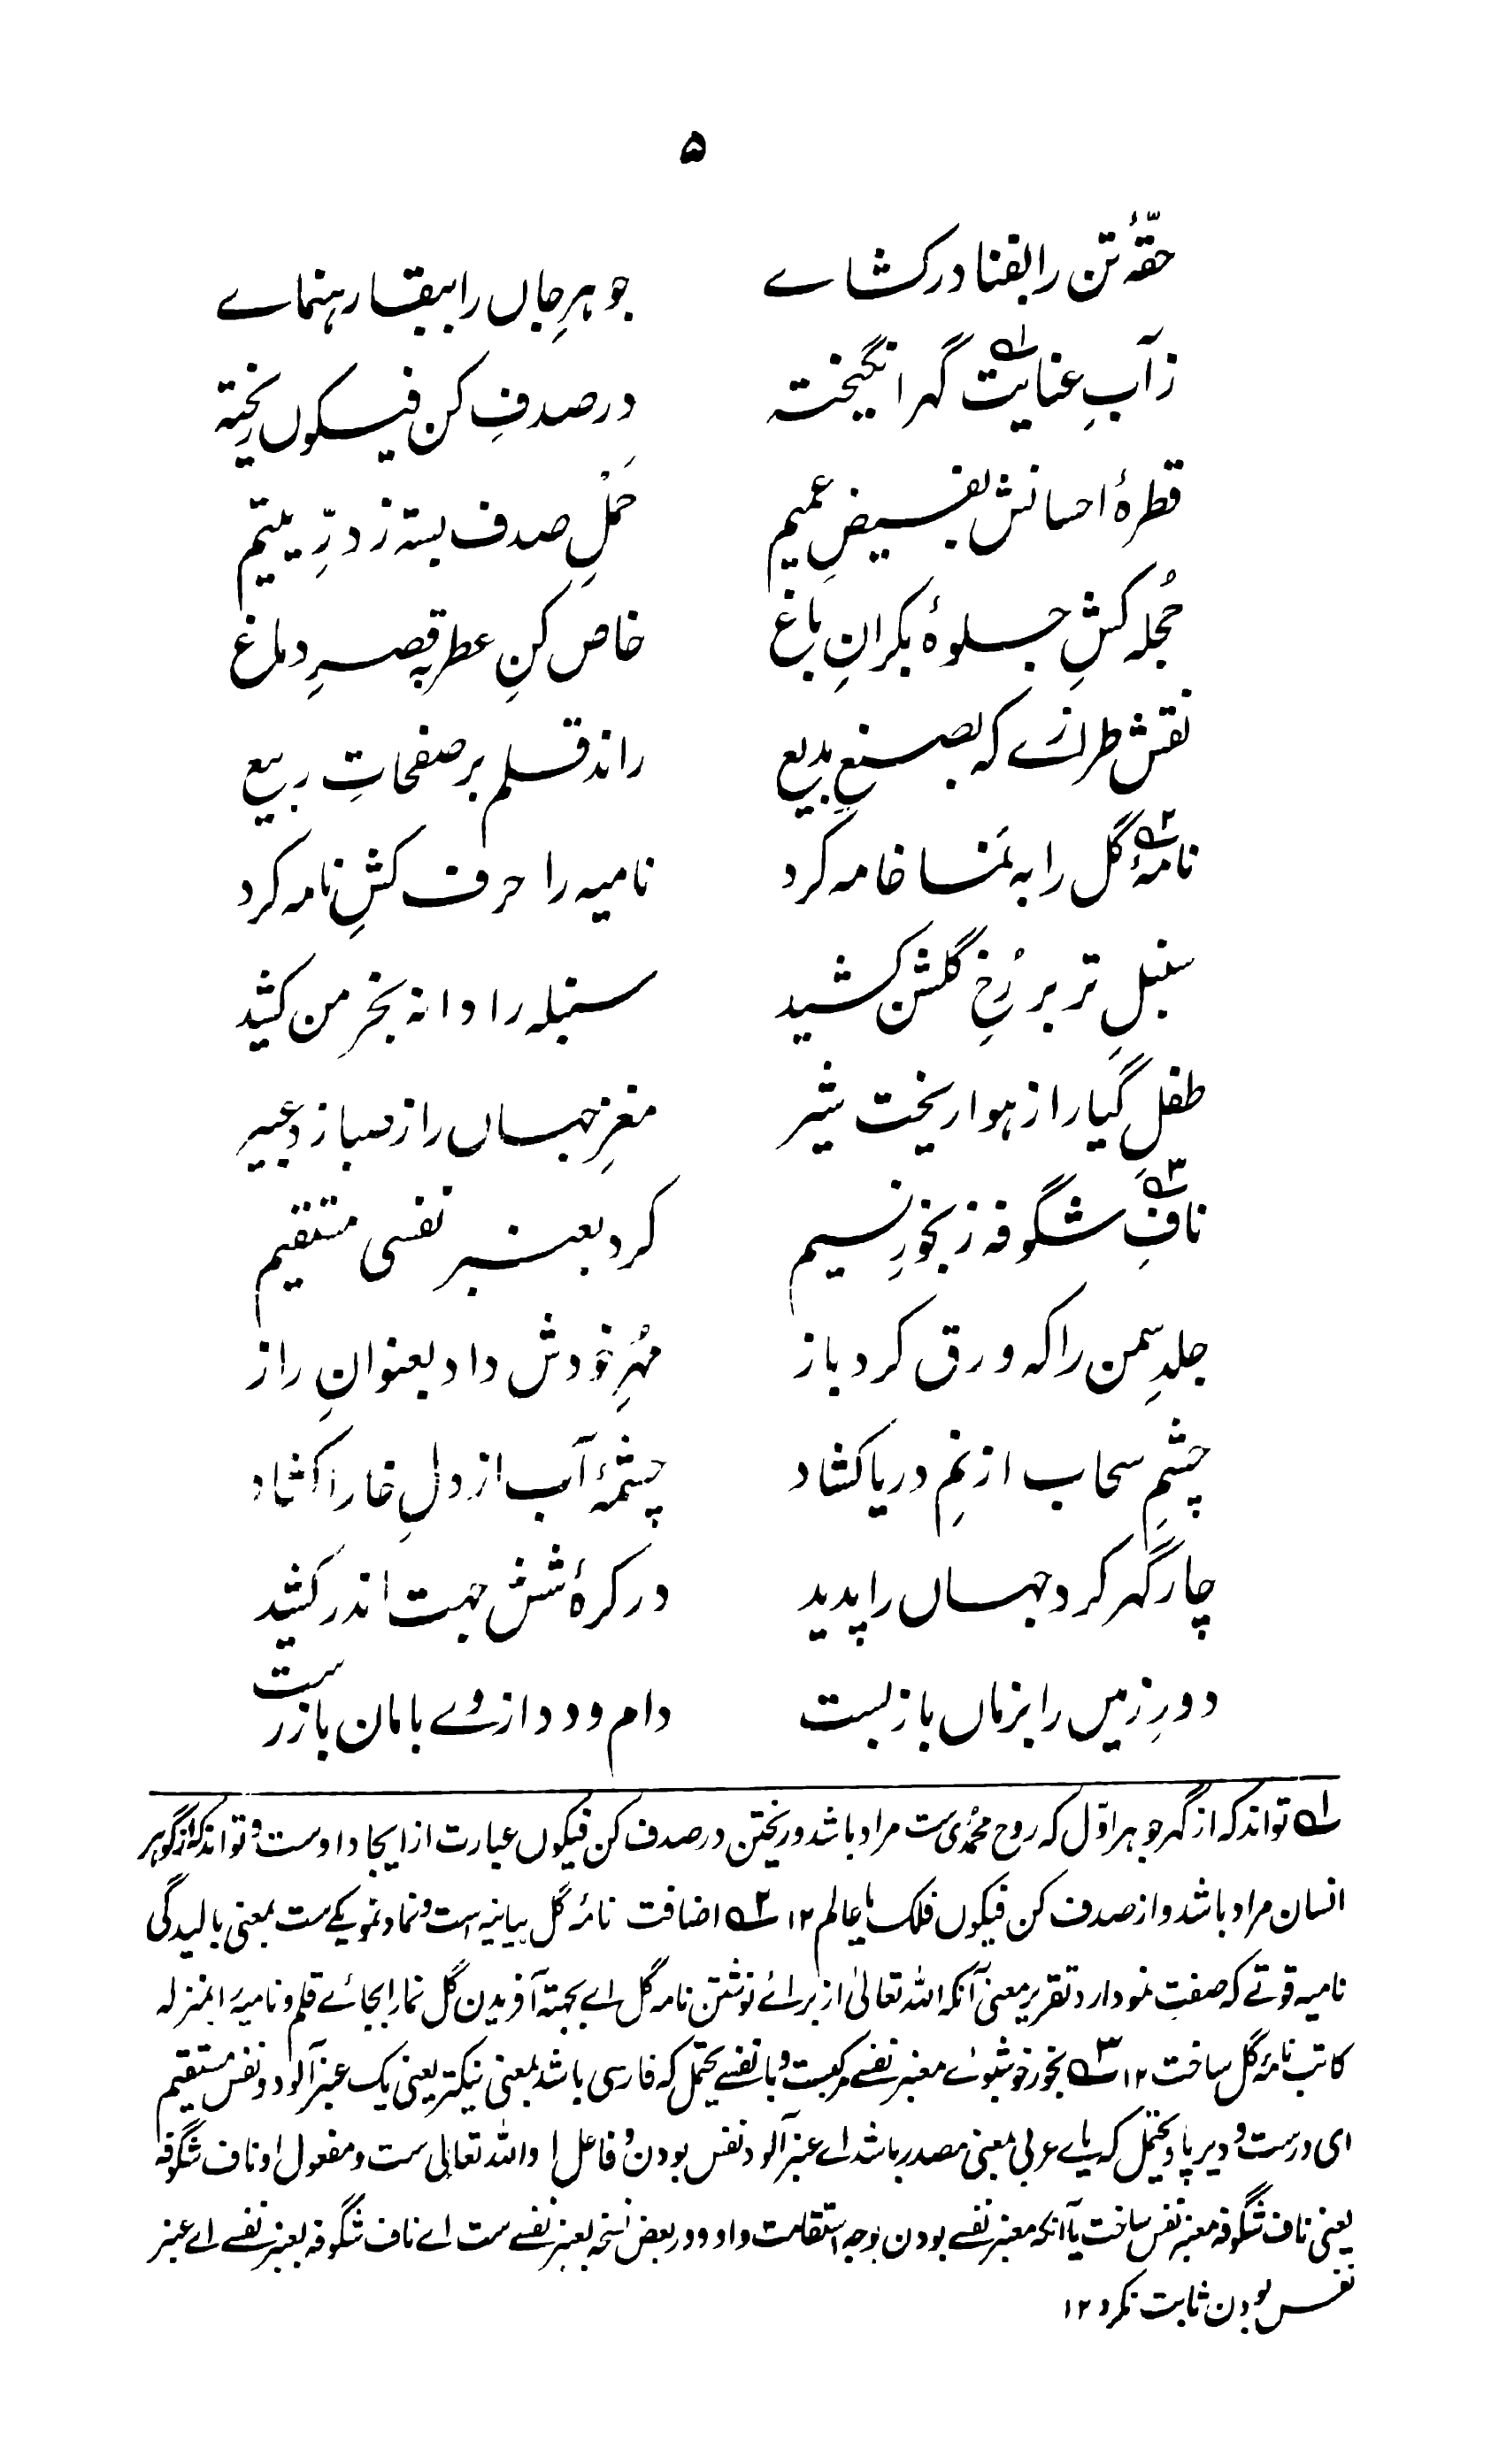 ۵
حقّۂ تن را بفنا درکشاے جوہرِ جاں را ببقا رہنماے
ز آبِ عنایت ۱؎ گہر انگیختہ در صدفِ کن فیکوں ریختہ
قطرۂ احسانش بفیضِ عمیم حَملِ صدف بستہ ز درِّ یتیم
حُجلہ کشِ جلوۂ بکرانِ باغ خاص کنِ عطر بہ قصرِ دماغ
نقش طرازے کہ بصنعِ بدیع راند قلم بر صفحاتِ ربیع
نامۂ ۲؎ گل را بہ نَما خامہ کرد نامیہ را حرف کشِ نامہ کرد
سنبلِ تر بر رُخِ گلشن کشید سنبلہ را دانہ بخرمن کشید
طفلِ گیا را ز ہوا ریخت شیر مغزِ جہاں را ز صبا زد عبیر
نافِ ۳؎ شگوفہ ز بخورِ نسیم کرد بعنبر نفسی مستقیم
جلدِ سمن را کہ ورق کرد باز مُہرِ خودش داد بعنوانِ راز
چشمِ سحاب از نمِ دریا کشاد چشمۂ آب از دلِ خارا کشاد
چار گہر کرد جہاں را پدید در کرۂ شش جہت اندر کشید
دورِ زمیں را بزماں باز بست دام و دد از وے بامان باز رست
۱؎ تواند کہ از گہر جوہر اوّل کہ روح محمدیؐ ست مراد باشد و ریختن در صدف کن فیکوں عبارت از ایجاد اوست و تواند کہ از گوہر
انسان مراد باشد و از صدف کن فیکوں فلک یا عالم ۱۲ ۲؎ اضافت نامۂ گل بیانیہ است و نما و نمو یکے ست بمعنی بالیدگی
نامیہ قوتے کہ صفتِ نمو دارد تقریر معنی آنکہ اللہ تعالیٰ از برائے نوشتن نامہ گل اے بجہتہ آفریدن گل نما را بجائے قلم و نامیہ را بمنزلہ
کاتب نامۂ گل ساخت ۱۲ ۳؎ بخور خوشبوئے معنبر نفسے مرکبست و با نفسے یحتمل کہ فارسی باشد بمعنی نیکتر یعنی یک عنبر آلود و نفس مستقیم
ای درست و دیرپا و یحتمل کہ یاے عربی بمعنی مصدر باشد اے عنبر آلود نفس بودن و فاعل او اللہ تعالیٰ ست و مفعول او ناف شگوفہ
یعنی ناف شگوفہ معنبر نفس ساخت یا آنکہ معنبر نفسے بودن بوجہ استقامت داد و در بعض نسخہ بعنبر نفسے ست اے ناف شگوفہ بعنبر نفسے اے عنبر
نفس بودن ثابت نکرد ۱۲